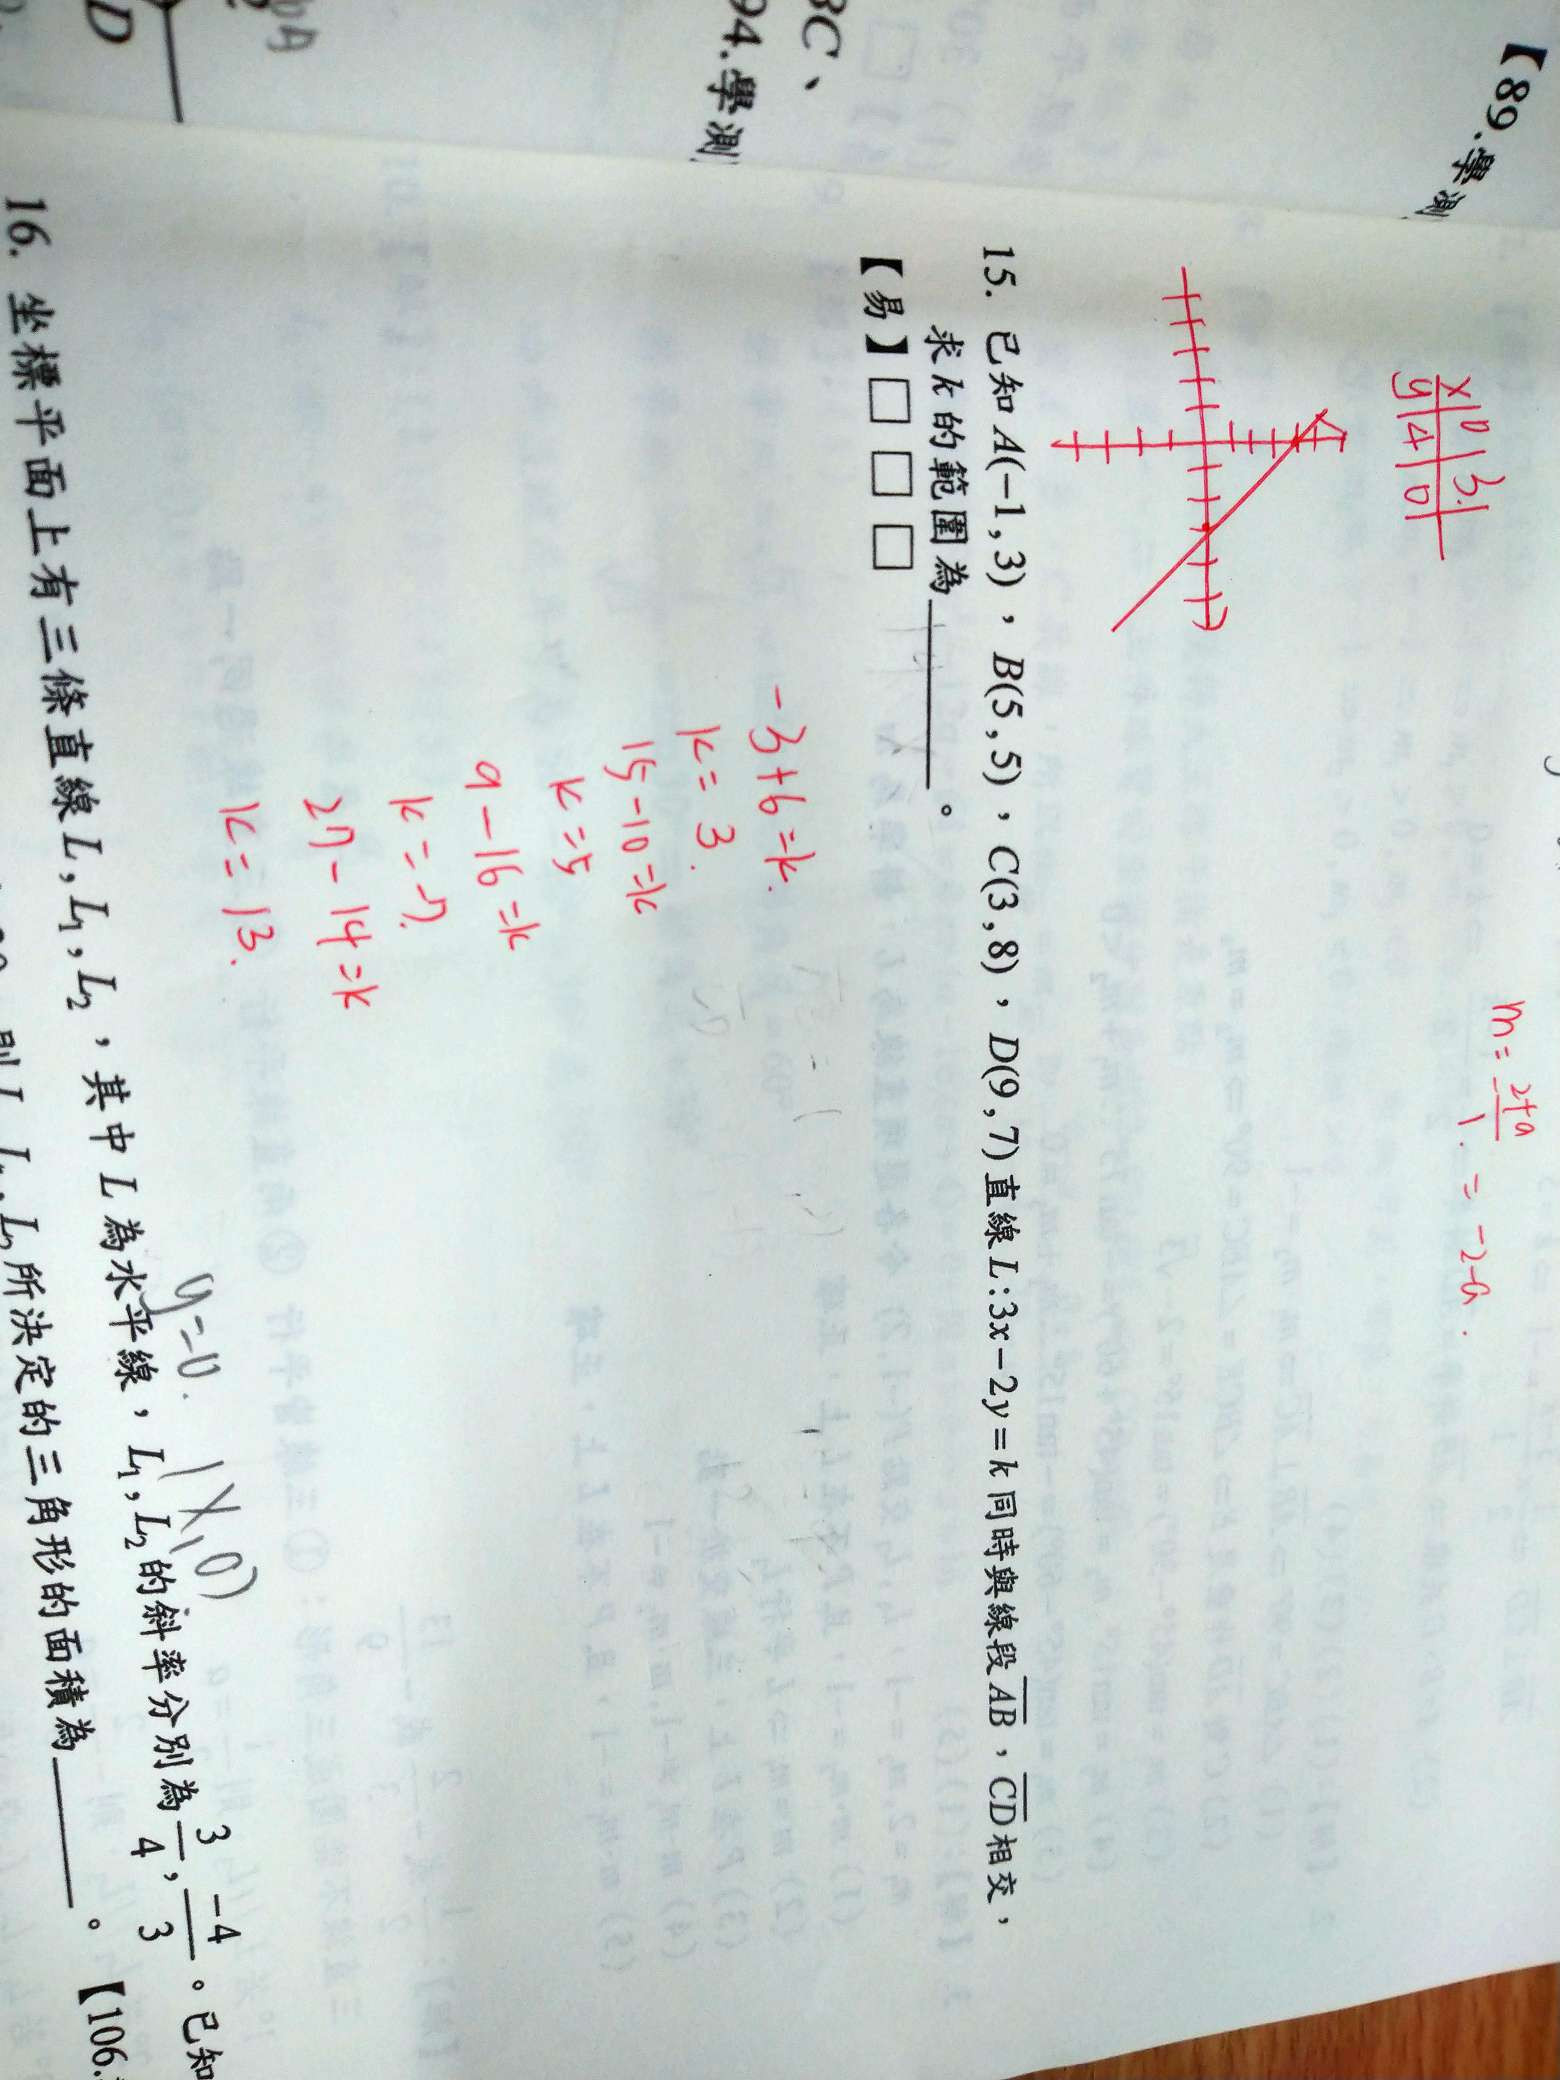 【89.學測
BC、
94.學測
D
x 0 3
y 4 0
m = 2+a / -1 = -2-a.
15. 已知A(−1,3),B(5,5),C(3,8),D(9,7)直線L:3x−2y=k同時與線段AB,CD相交,
求k的範圍為______。
【易】□□□
-3+6=k.
k=3.
15-10=k
k=5
9-16=k
k=-7.
27-14=k
k=13.
y=0. (x,0)
16. 坐標平面上有三條直線L,L₁,L₂,其中L為水平線,L₁,L₂的斜率分別為3/4,-4/3。已知
所決定的三角形的面積為______。 【106.